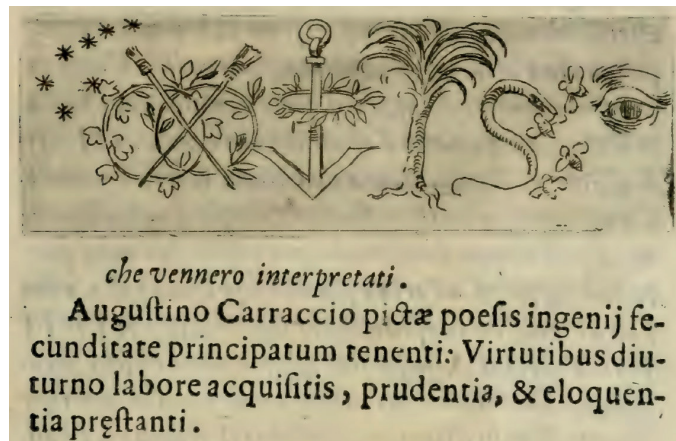 che vennero interpretati.
Auguſtino Carraccio pictæ poeſis ingenij fe-
cunditate principatum tenenti: Virtutibus diu-
turno labore acquiſitis, prudentia, & eloquen-
tia pręſtanti.